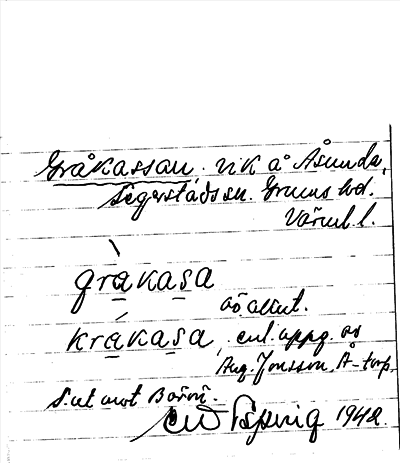 Gråkassan. vik å Åsunda,
Segerstads sn. Grums hd.
Värml. l.
grakasa
krakasa, enl. uppg. av
Aug. Jonsson, Å-torp.
S. ut mot Borön.
1942.